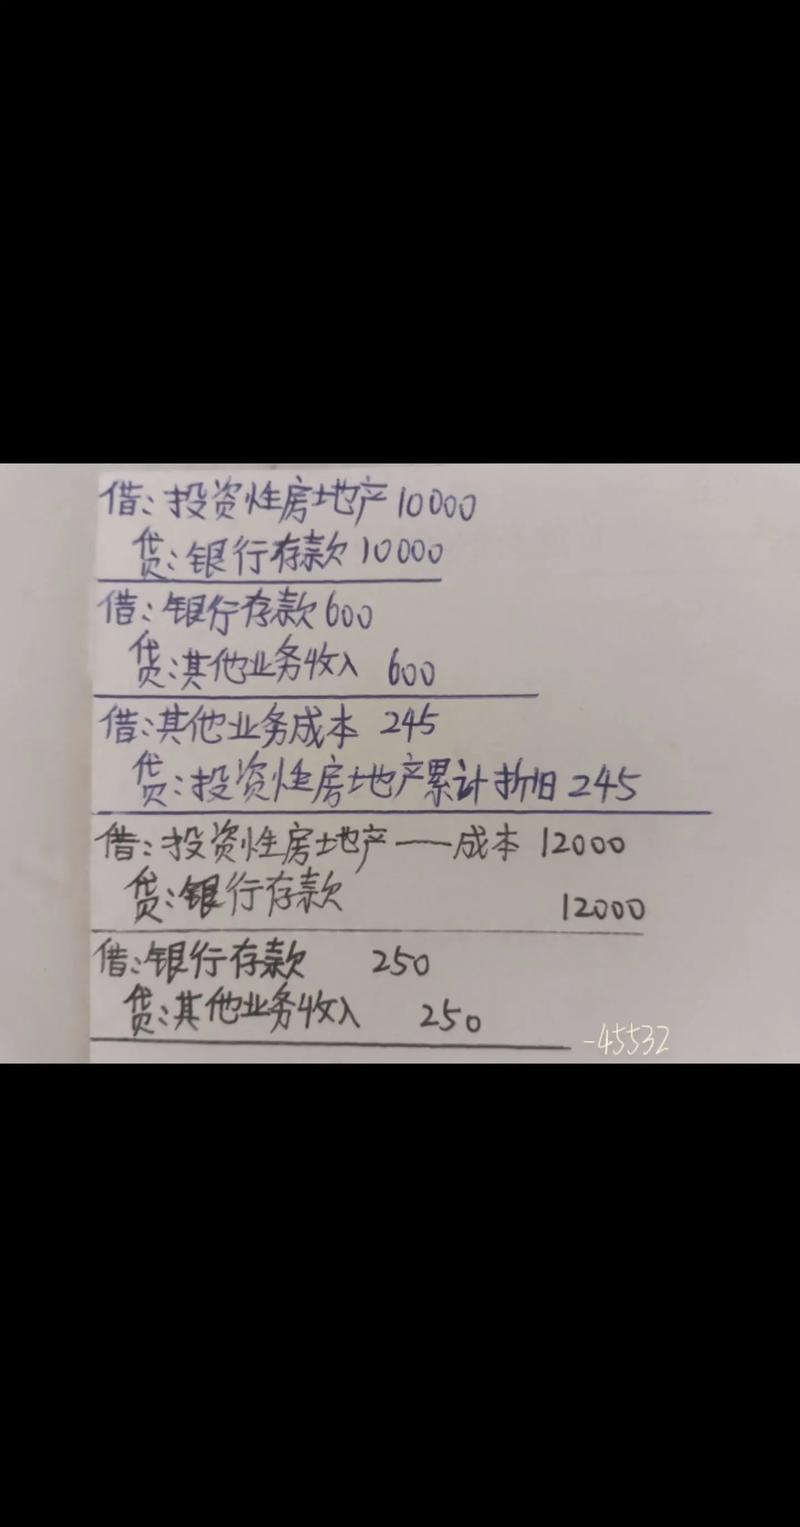 借:投资性房地产10000
贷:银行存款10000
借:银行存款600
贷:其他业务收入 600
借:其他业务成本 245
贷:投资性房地产累计折旧 245
借:投资性房地产——成本 12000
贷:银行存款 12000
借:银行存款 250
贷:其他业务收入 250
-45532